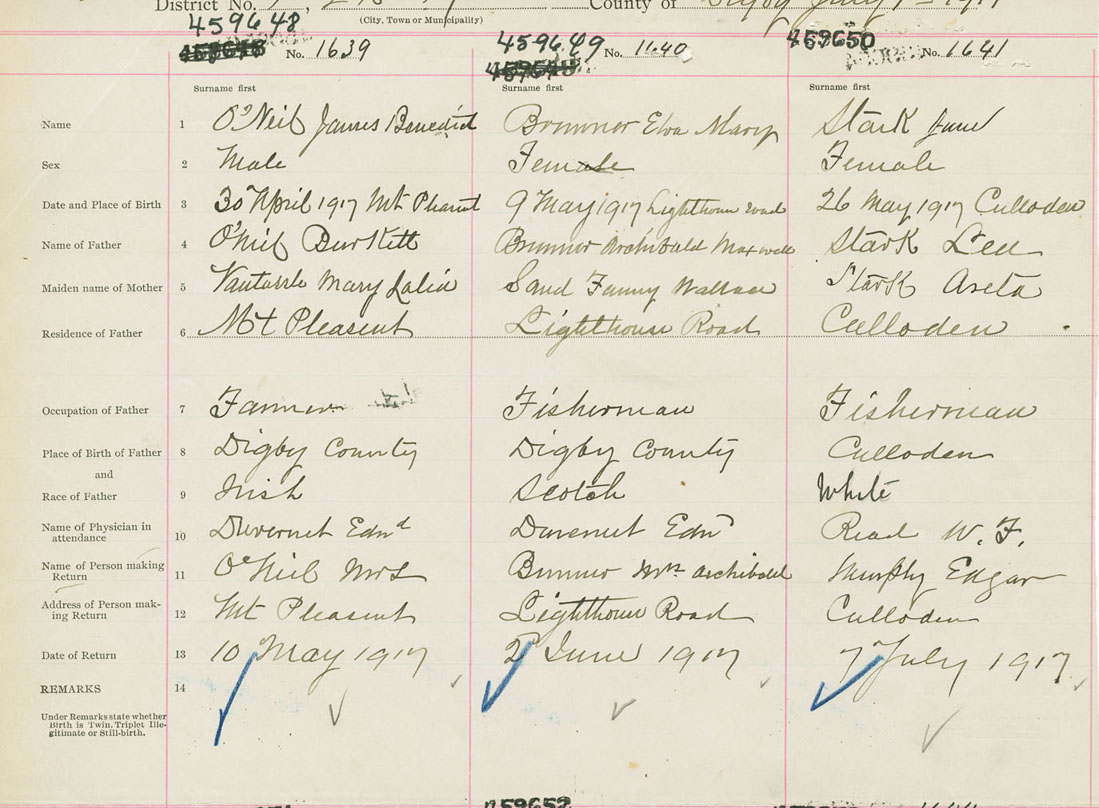 District No. County of Digby July 1st 1917
(City, Town or Municipality)
459648 459649 459650
No. 1639 No. 1640 No. 1641
Surname first Surname first Surname first
Name 1 O'Neil James Benedict Brunner Elva Mary Stark June
Sex 2 Male Female Female
Date and Place of Birth 3 30 April 1917 Mt Pleasant 9 May 1917 Lighthouse Road 26 May 1917 Culloden
Name of Father 4 O'Niel Burkett Brunner Archibald Maxwell Stark Lee
Maiden name of Mother 5 Mary Sand Fanny Wallace Stark Areta
Residence of Father 6 Mt Pleasent Lighthouse Road Culloden
Occupation of Father 7 Farmer Fisherman Fisherman
Place of Birth of Father 8 Digby County Digby County Culloden
and
Race of Father 9 Irish Scotch White
Name of Physician in
attendance 10 Duvernet Ednd Duvernet Edn Read W. F.
Name of Person making
Return 11 O'Neil Mrs Brunner Mrs Archibald Murphy Edgar
Address of Person mak-
ing Return 12 Mt Pleasent Lighthouse Road Culloden
Date of Return 13 10 May 1917 2 June 1917 7 July 1917
REMARKS 14
Under Remarks state whether
Birth is Twin, Triplet Ille-
gitimate or Still-birth.
459652